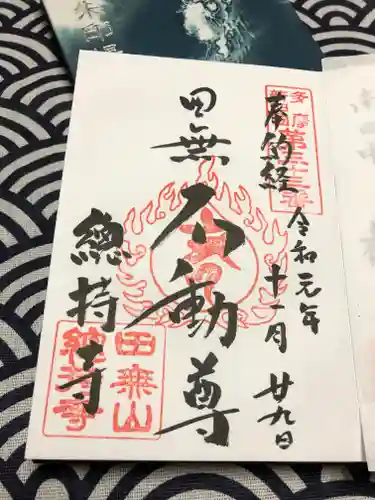 奉納経
令和元年
十一月廿九日
田無
不動尊
總持寺
多摩
田無山
總持寺